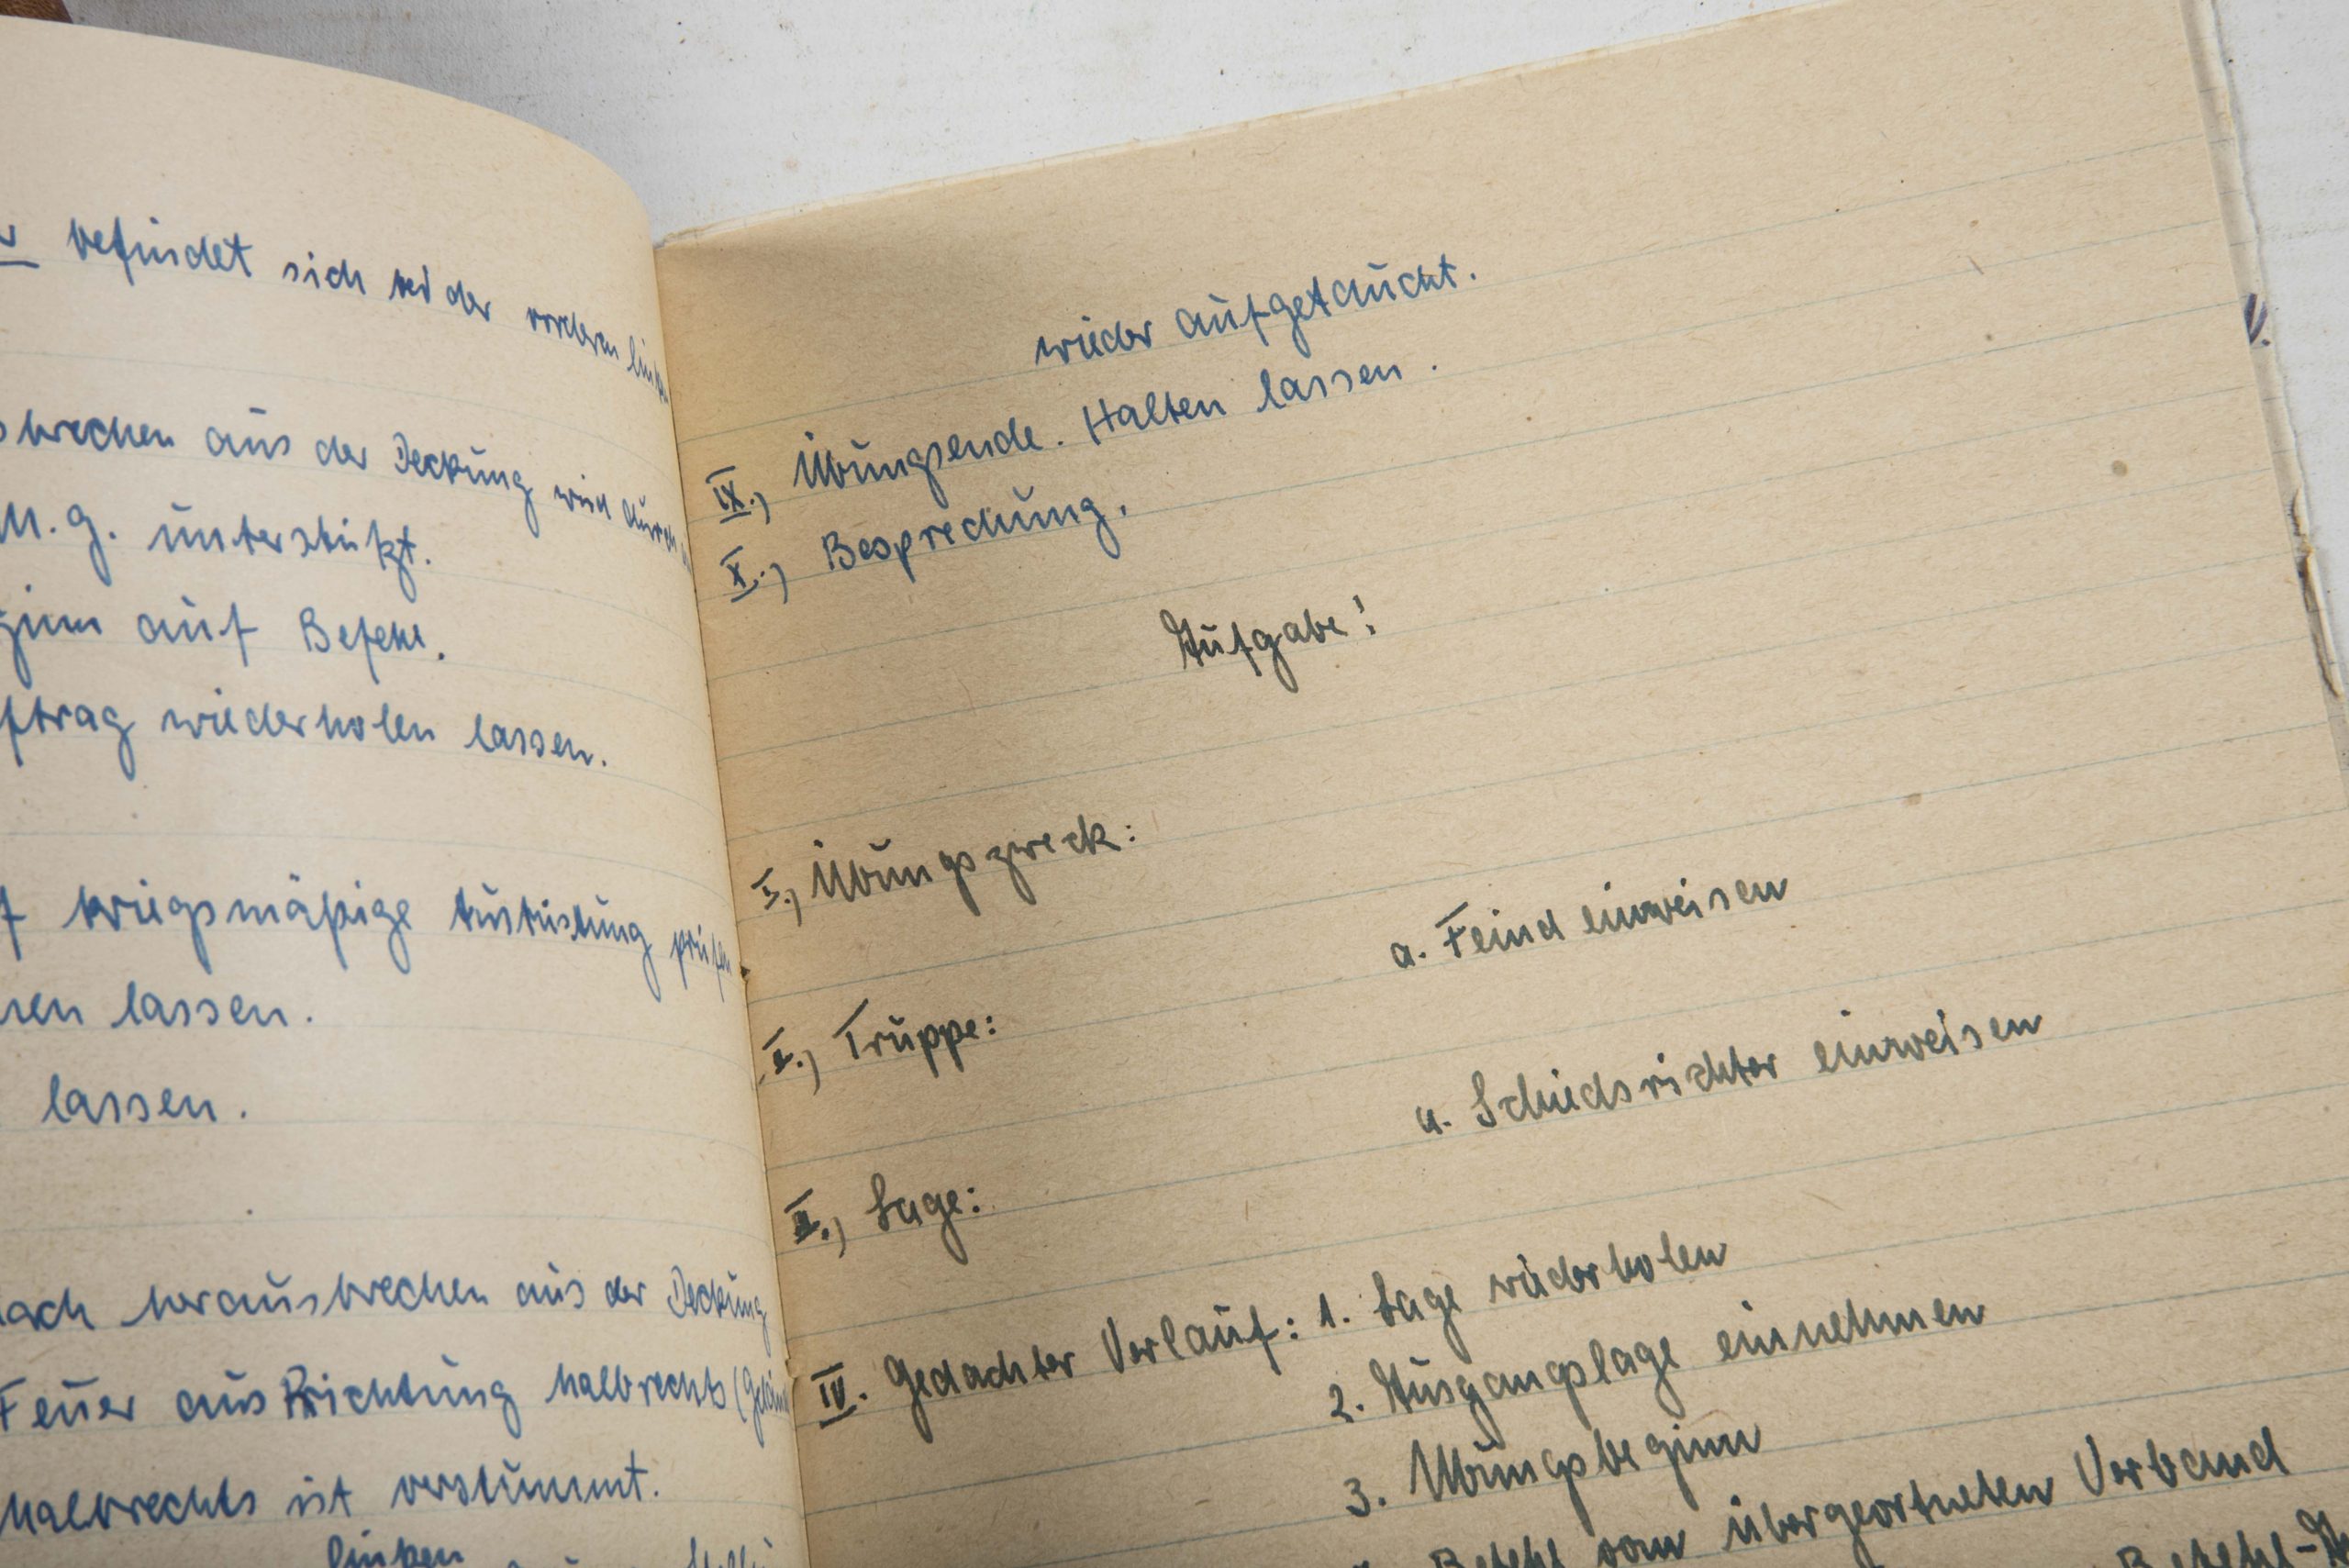 befindet sich bei der vorderen
brechen aus der Deckung wird durch
M. g. unterstützt.
auf Befehl.
ftrag wiederholen lassen.
kriegsmäßige Ausrüstung prüfen
lassen.
lassen.
herausbrechen aus der Deckung
Feuer aus Richtung halbrechts
halbrechts ist verstummt.
linken
wieder aufgetaucht.
IX.) Übungsende. Halten lassen.
X.) Besprechung.
Aufgabe!
I.) Übungszweck:
a. Feind einweisen
II.) Truppe:
a. Schiedsrichter einweisen
III.) Lage:
IV. Gedachter Verlauf: 1. Lage wiederholen
2. Ausgangslage einnehmen
3. Übungsbeginn
Befehl vom übergeordneten Verband
Befehl-